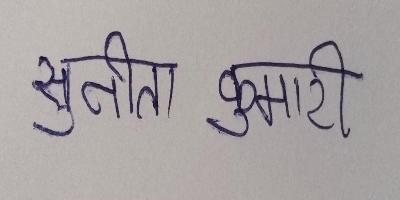 सुनीता कुमारी